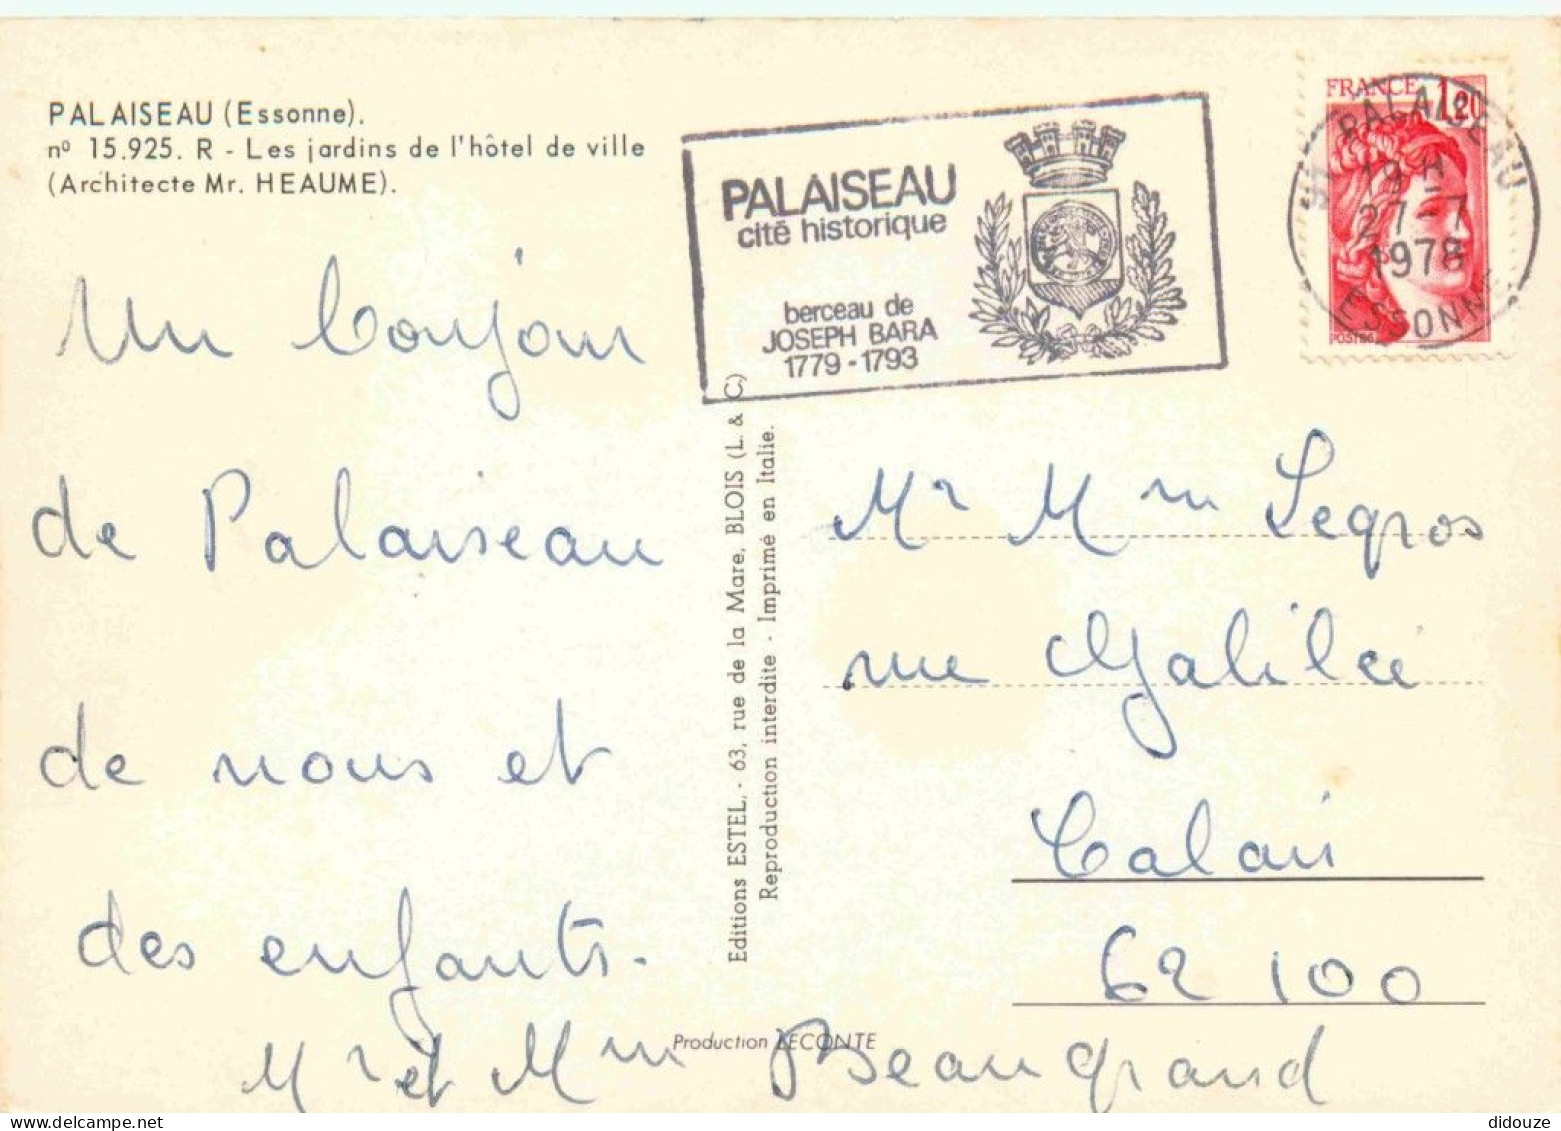 PALAISEAU (Essonne).
nº 15.925. R - Les jardins de l'hôtel de ville
(Architecte Mr. HEAUME).
Un bonjour
de Palaiseau
de nous et
des enfants.
Mr et Mm Beaugrand
PALAISEAU
cité historique
berceau de
JOSEPH BARA
1779-1793
FRANCE 1,20
POSTES
91 PALAISEAU
19 H
27-7
1978
ESSONNE
Editions ESTEL, - 63, rue de la Mare, BLOIS (L. & C.)
Reproduction interdite - Imprimé en Italie.
Mr Mm Legros
rue Galilée
Calais
62 100
Production LECONTE
didouze